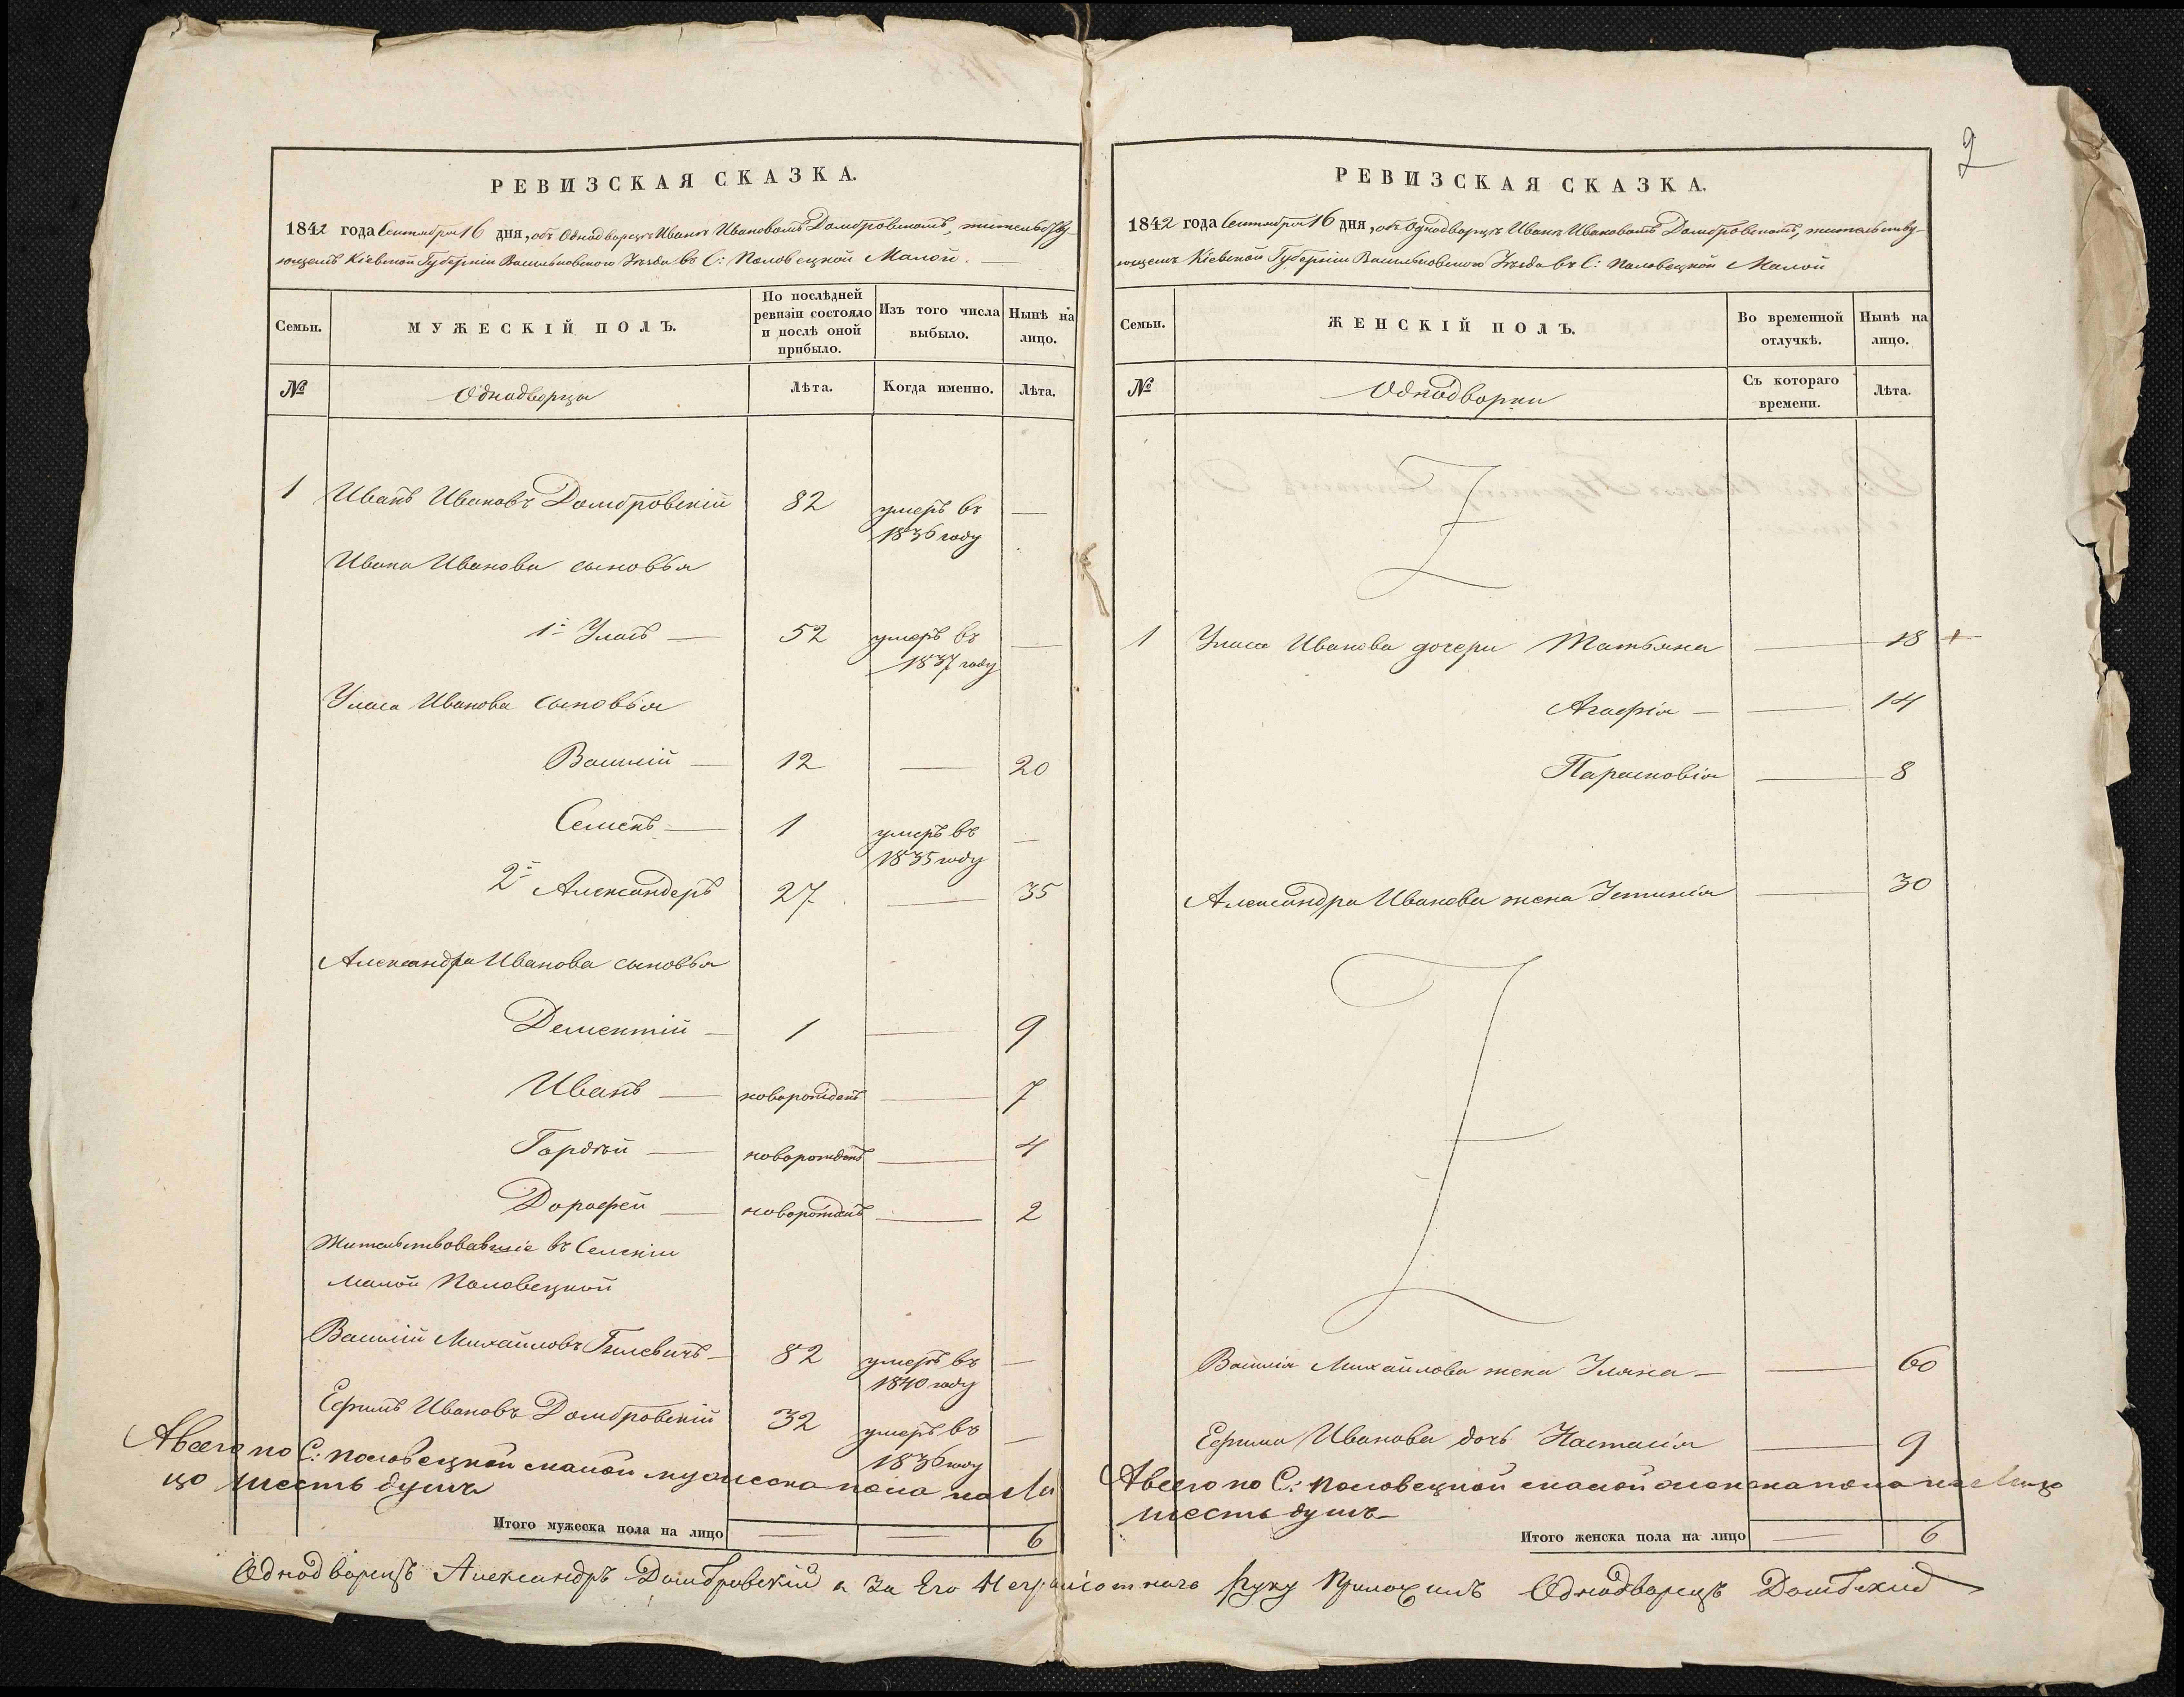 2
РЕВИЗСКАЯ СКАЗКА.
1842 года Сентября 16 дня, объ Однодворцѣ Иванѣ Ивановомъ Домбровскомъ, жительству-
ющемъ Кіевской Губерніи Васильковского Уѣзда въ С: Половецкой Малой.
Семьи.
МУЖЕСКІЙ ПОЛЪ.
По послѣдней
ревизіи состояло
и послѣ оной
прибыло.
Изъ того числа
выбыло.
Нынѣ на
лицо.
№
Однодворцы
Лѣта.
Когда именно.
Лѣта.
1 Иванъ Ивановъ Домбровскій 82 умеръ въ —
1836 году
Ивана Иванова сыновья
1й Уласъ — 52 умеръ въ —
1837 году
Уласа Иванова сыновья
Василій — 12 — 20
Семенъ — 1 умеръ въ —
1835 году
2й Александеръ 27 — 35
Александра Иванова сыновья
Дементій — 1 — 9
Иванъ — новорожденъ — 7
Гордѣй — новорожденъ — 4
Дорофей — новорожденъ — 2
Жительствовавшіе въ Селеніи
Малой Половецкой
Василій Михайловъ Гилевичъ — 82 умеръ въ —
1840 году
Ефимъ Ивановъ Домбровскій 32 умеръ въ —
1836 году
А всего по С: Половецкой малой мужеска пола на ли
цо шесть душъ
Итого мужеска пола на лицо — — 6
РЕВИЗСКАЯ СКАЗКА.
1842 года Сентября 16 дня, объ Однодворцѣ Иванѣ Ивановомъ Домбровскомъ, жительству-
ющемъ Кіевской Губерніи Васильковского Уѣзда въ С: Половецкой Малой
Семьи.
ЖЕНСКІЙ ПОЛЪ.
Во временной
отлучкѣ.
Нынѣ на
лицо.
№
Однодворки
Съ котораго
времени.
Лѣта.
1 Уласа Иванова дочери Татьяна — 18
Агафія — — 14
Парасковія — 8
Александра Иванова жена Устинія — 30
Василія Михайлова жена Уляна — — 60
Ефима Иванова дочь Настасія — 9
А всего по С: Половецкой малой женска пола на лицо
шесть душъ
Итого женска пола на лицо — 6
Однодворецъ Александръ Домбровскій а За Его Неграмотного Руку Приложилъ Однодворецъ